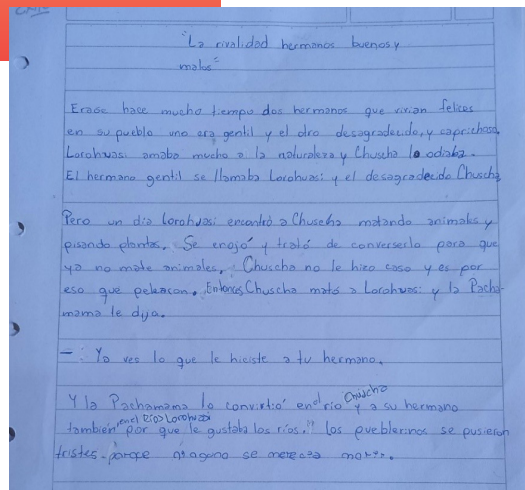 "La rivalidad hermanos buenos y
malos"
Erase hace mucho tiempo dos hermanos que vivian felices
en su pueblo uno era gentil y el otro desagradecido, y caprichoso,
Lorohuasi amaba mucho a la naturaleza y Chuscha lo odiaba.
El hermano gentil se llamaba Lorohuasi y el desagradecido Chuscha
Pero un dia Lorohuasi encontró a Chuscha matando animales y
pisando plantas. Se enojó y trató de converserlo para que
ya no mate animales. Chuscha no le hizo caso y es por
eso que pelearon. Entonces Chuscha mató a Lorohuasi y la Pacha-
mama le dijo.
—: Ya ves lo que le hiciste a tu hermano.
Y la Pachamama lo convirtió en el rio Chuscha y a su hermano
también en el Rio Lorohuasi por que le gustaba los ríos." los pueblerinos se pusieron
tristes porque ninguno se merecia morir.